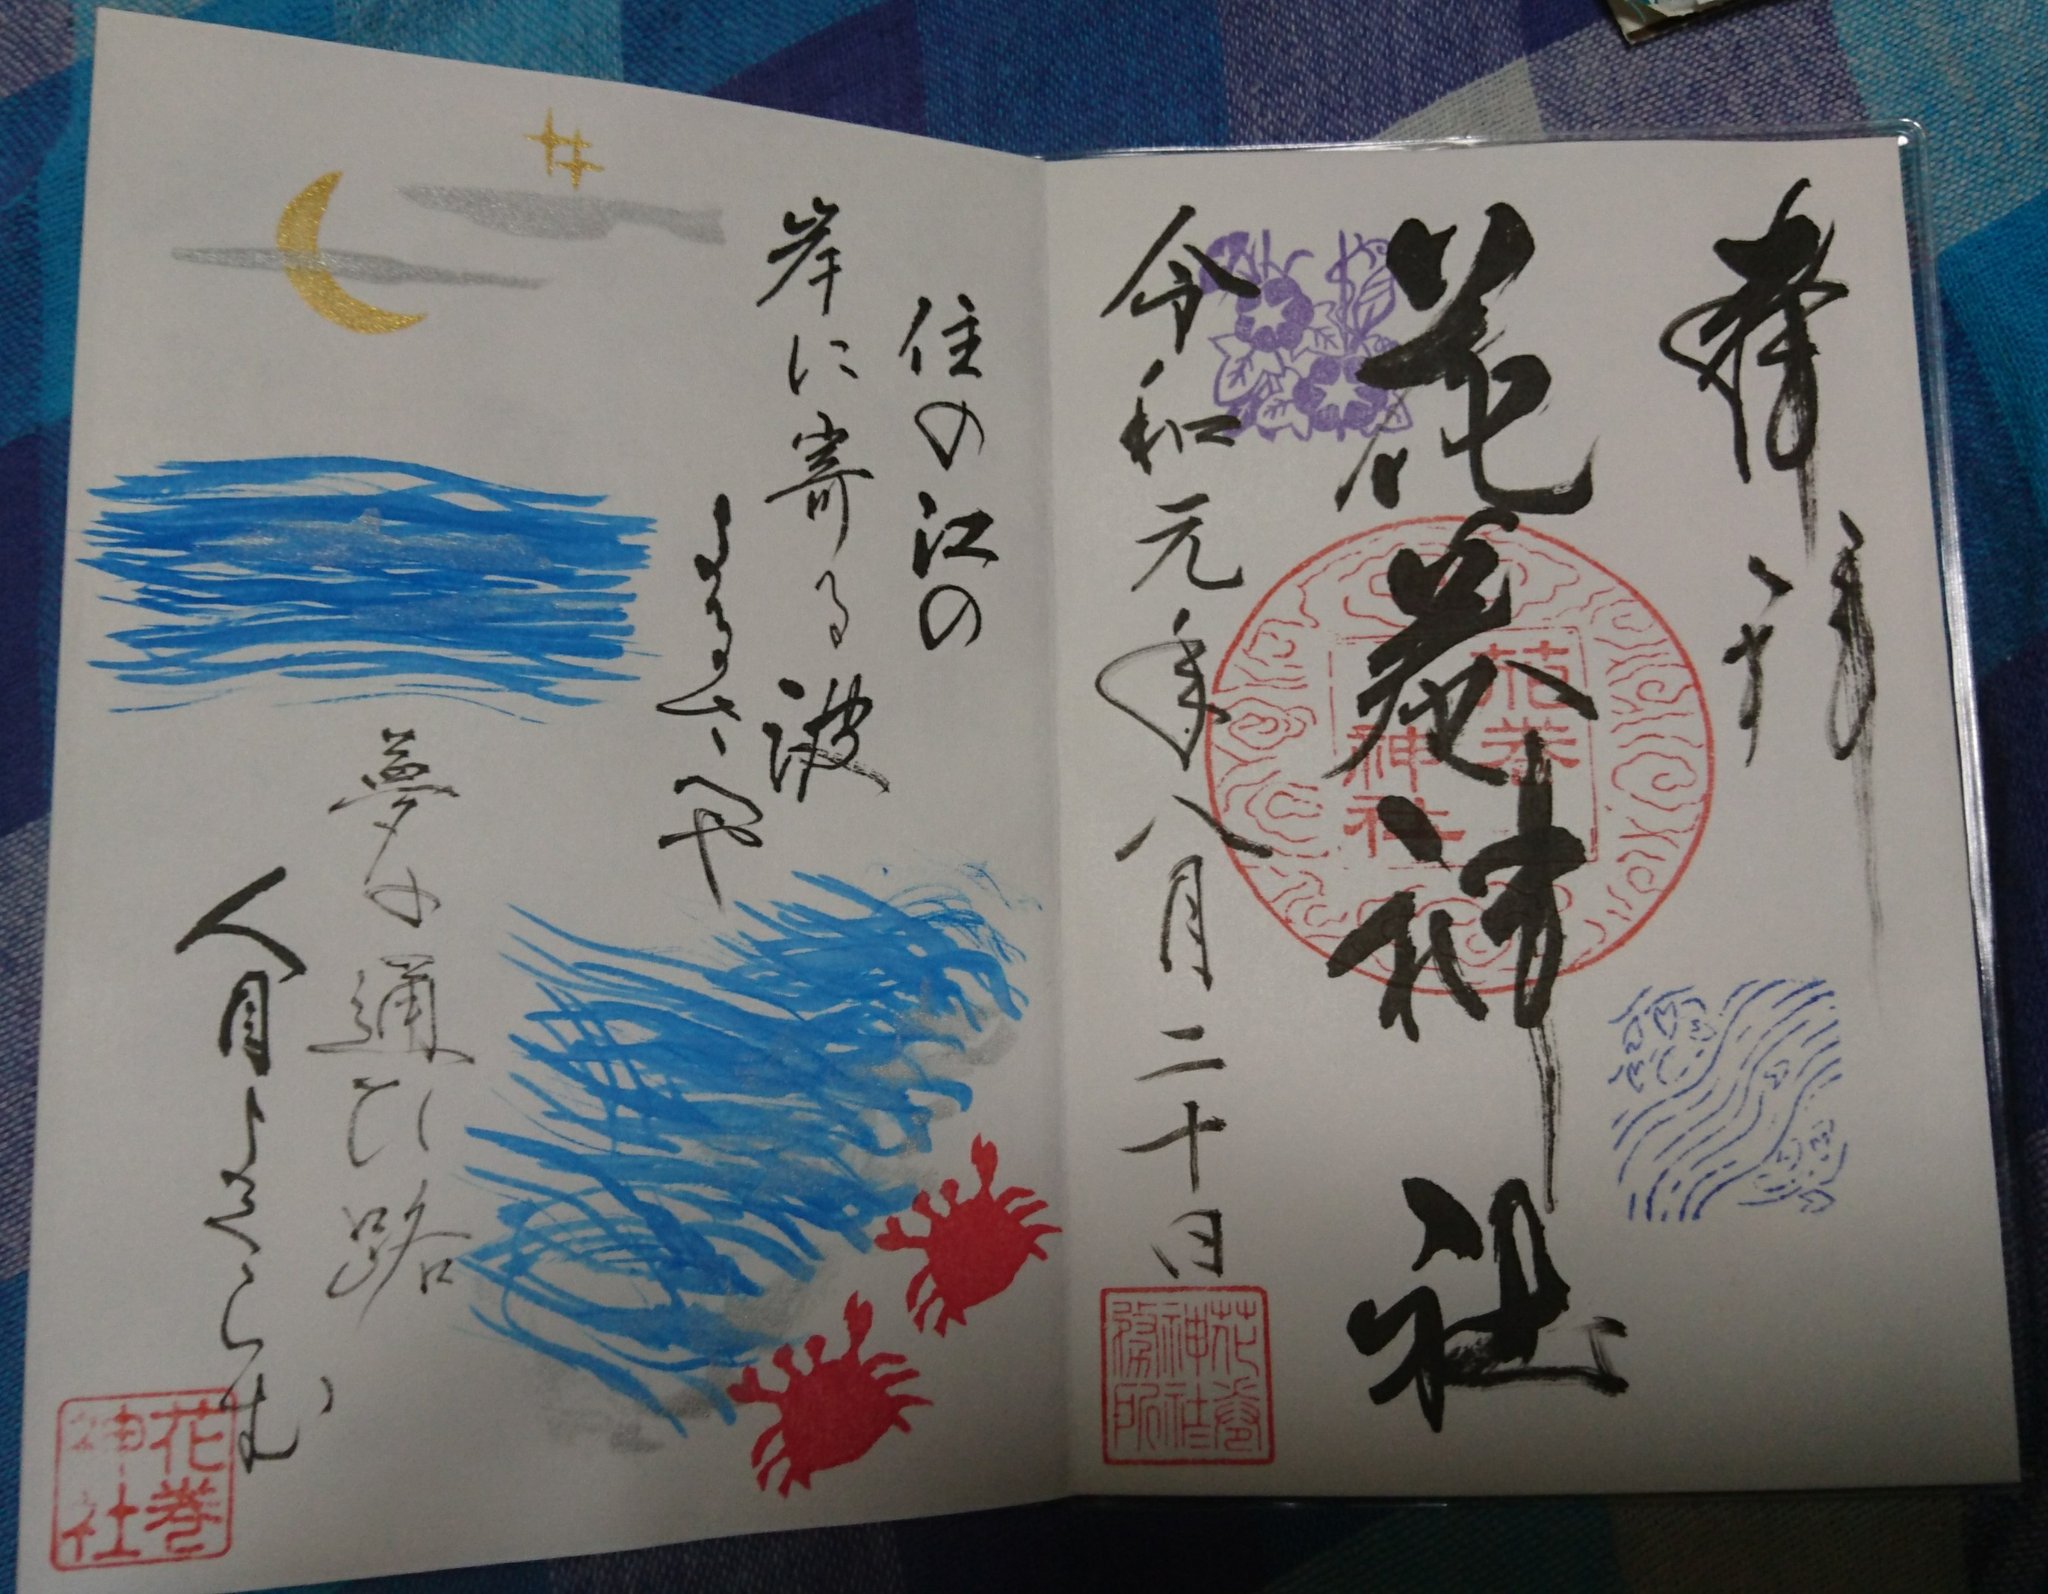 奉拝
花巻神社
花巻神社
令和元年八月二十日
花巻神社務所
住の江の
岸に寄る波
よるさへや
夢の通ひ路
人目よくらむ
花巻神社